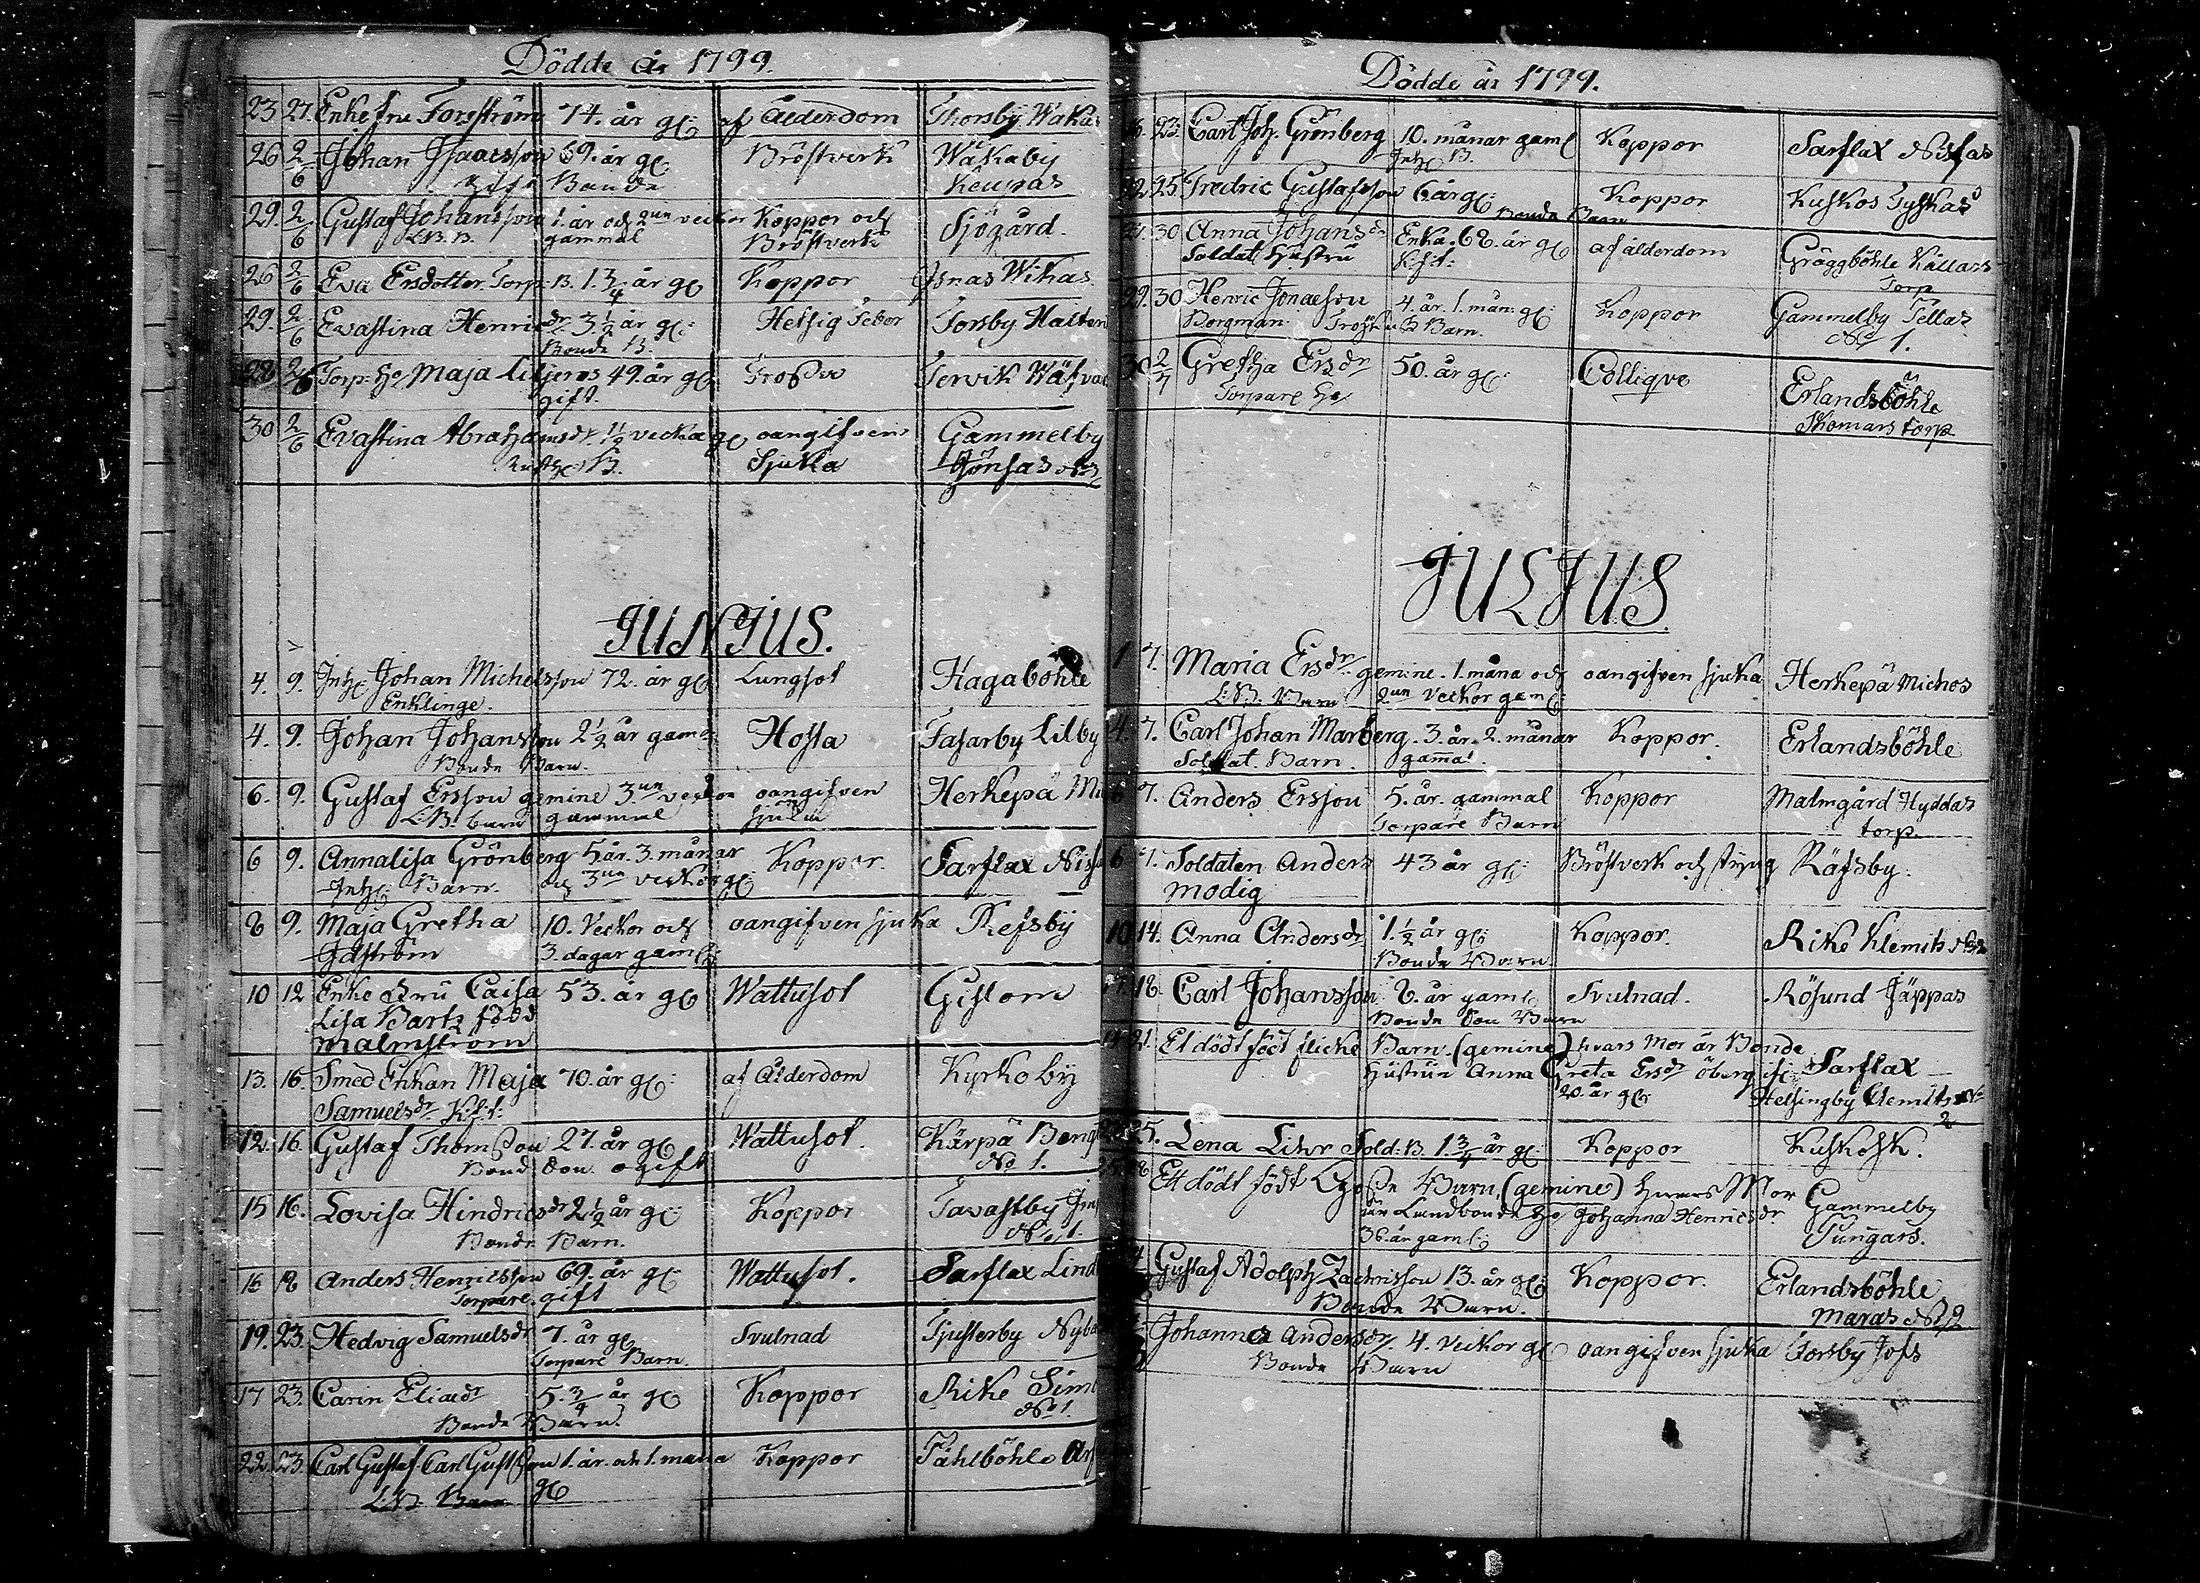 Dödde år 1799.
23 27. Enke fru Forsström 74. år gl: af Ålderdom Thorsby Wäkas
26 2/6 Johan Isaacsson 69. år gl: Bröstverk Wäkaby
gift Bonde Keupas
29. 2/6 Gustaf Johansson 1. år och 2un veckor Koppor och Sjögård.
L.B.B. gammal Bröstverk
26 2/6 Eva Ersdotter Torp. B. 1. 3/4 år gl Koppor Isnas Wikas
29. 2/6 Evastina Henricsdr 3 1/2 år gl: Hetsig Feber Torsby Halten
Bonde B.
28 2/6 Torp: Hu Maja Liljeros 49. år gl: Frossa Tervik Wäfvar
gift.
30 2/6 Evastina Abrahamsdr. 1 1/2 vecka gl oangifven Gammelby
Rusth: B. Sjukla Jönsas
JUNIUS.
4. 9. Inh: Johan Michelsson 72. år gl Lungsot Hagaböhle
Enklinge.
4. 9. Johan Johansson 2 1/2 år gaml: Hosta Fasarby Lilby
Bonde Barn.
6. 9. Gustaf Ersson gemine 3.un veckor oangifven Herkepä
L:B: barn gammal sjuka
6 9. Annalisa Grönberg 5 år. 3. månar Koppor. Sarflax Niss
Inh: Barn. och 3un veckor gl:
8 9. Maja Gretha 10. Veckor och oangifven sjuka Refsby
Idström 3. dagar gaml:
10 12 Enke Fru Caisa 53. år gl Wattusot Gislom
Lisa Bartz född
Malmström
13. 16. Smed Enkan Maja 70. år gl: af Ålderdom Kyrkoby
Samuelsdr K:f:t:
12. 16. Gustaf Thomsson 27. år gl Wattusot. Kärpä Beng
Bond Son ogift No 1.
15 16. Lovisa Hindricsdr 2 1/2 år gl: Koppor Tavastby
Bonde Barn. No 1.
16 18 Anders Henricsson 69. år gl: Wattusot. Sarflax Lind
Torpare. gift
19. 23. Hedvig Samuelsdr 7. år gl Svulnad Tjusterby Nyba
Torpare Barn.
17 23. Carin Eliaedr 5. 3/4 år gl Koppor Rike Sim
Bonde Barn. No 1.
22. 23. Carl Gustaf Carl Gustsson 1. år. och 1. måna Koppor Påhlböhle
L:B Barn gl
Dödde år 1799.
16. 23. Carl Joh. Grönberg 10. månar gaml Koppor Sarflax Nissas
Inh: B.
22. 25 Fredric Gustafsson 6 år gl: Koppor Kuskos Tyskas
Bonde Barn
30 Anna Johansdr Enka. 68. år gl af ålderdom Gräggböhle Källars
Soldat Hustru K:f:t: Torp
29. 30 Henric Jonaesson 4. år. 1. mån: gl: Koppor Gammelby Tellas
Bergman. Barn. No 1.
30 2/7 Gretha Ersdr 50. år gl: Collique Erlandsböhle
Torpare Hu Thomars torp
JULIUS.
1 7. Maria Ersdr gemine. 1. måna och oangifven sjuka Herkepä Michos
L:B. Barn 2un Veckor gaml
4. 7. Carl Johan Marberg. 3. år. 2. månar Koppor. Erlandsböhle
Soldat. Barn. gamal.
6 7. Anders Ersson 5. år. gammal Koppor Malmgård Hyddas
Torpare Barn torp
6 7. Soldaten Anders 43 år gl: Bröstverk och styng Räfsby.
Modig
10 14. Anna Andersdr 1. 1/2 år gl: Koppor. Rike Klemits
Bonde Barn
18. Carl Johansson 8. år gaml Svulnad. Rösund Jäppas
Bonde Son Barn
21. Et dödt födt flicke Barn (gemine) hvars Mor är Bonde
Hustrun Anna Greta Ersdr öberg Sarflax
20. år gl: Helsingby Clemits No 2
25. Lena Lihr Sold: B. 1 3/4 år gl: Koppor Kuskosk.
Ett dödt födt Gosse Barn, (gemine) hvars Mor Gammelby
är Landbonde Hu Johanna Henricsdr Tungars.
36. år gaml:
Gustaf Adolph Zachrisson 13. år gl: Koppor. Erlandsböhle
Bonde Barn. Maras No 2
Johanna Andersdr. 4. Veckor gl oangifven sjuka Torsby Jofs
Bonde Barn